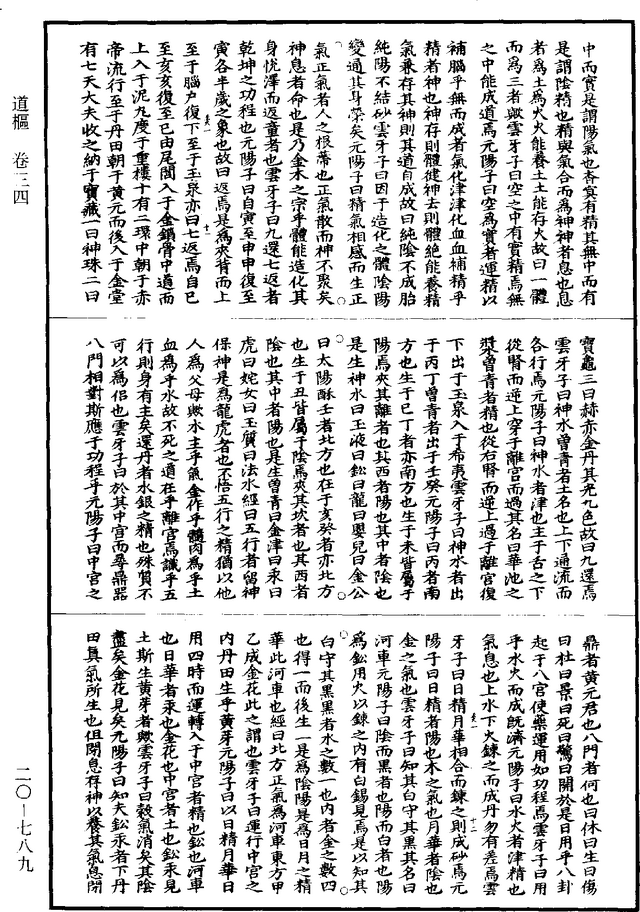 道樞　卷三四
中而實是謂陽氣也杳冥有精其無中而有
是謂陰精也精與氣合而為神神者息也息
者為土為火火能養土土能存火故曰一體
而為三者歟雲牙子曰空之中有實精焉無
之中能成道焉元陽子曰空為實者運精以
補腦乎無而成者氣化津津化血血補精乎
精者神也神存則體健神去則體絕能養精
氣兼存其神則其道自成故曰純陰不成胎
純陽不結砂雲牙子曰因于造化之體陰陽
變通其身榮矣元陽子曰精氣相感而生正
氣正氣者人之根蔕也正氣散而神不聚矣
神息者命也是乃金木之宗乎體能造化其
身悅澤而返童者也雲牙子曰九還七返者
乾坤之功程也元陽子曰自寅至申申復至
寅各半歲之象也故曰返焉是為夾脊而上
至于腦户復下至于玉泉亦曰七返焉自巳
至亥亥復至巳由尾閭入于金鎖骨中道而
上入于泥丸度于重樓十有二環中朝于赤
帝流行至于丹田朝于黄元而後入于金堂
有七天大夫收之納于寶藏一曰神珠二曰
寶龜三曰赫赤金丹其光九色故曰九還焉
雲牙子曰神水曽青者土名也上下通流而
各行焉元陽子曰神水者津也主于舌之下
從腎而逆上穿于離宫而過其名曰華池之
漿曽青者精也從右腎而逆上過于離宫復
下出于玉泉入于希夷雲牙子曰神水者出
于丙丁曽青者出于壬癸元陽子曰丙者南
方也生于巳丁者亦南方也生于未皆屬于
陽焉夾其離者也其西者陽也其中者陰也
是生神水曰玉液曰鈆曰龍曰嬰兒曰金公
曰太陽酥壬者北方也在于亥癸者亦北方
也生于丑皆屬于陰焉夾其坎者也其西者
陰也其中者陽也是生曽青曰金津曰汞曰
虎曰姹女曰玉質曰法水經曰五行者留神
保神是為龍虎者也不悟五行之精猶以他
人為父母歟水主乎氣金作乎髓肉為乎土
血為乎水故不死之道在乎離宫焉識乎五
行則身有主矣還丹者水銀之精也殊質不
可以為侣也雲牙子曰於其中宫而尋鼎器
八門相對斯應于功程乎元陽子曰中宫之
鼎者黄元君也八門者何也曰休曰生曰傷
曰杜曰景曰死曰驚曰開於是日用乎八卦
起于八宫使藥運用如功程焉雲牙子曰用
乎水火而成旣濟元陽子曰水火者津精也
氣息也上水下火鍊之而成丹勿有差焉雲
牙子曰日精月華相合而鍊之則成砂焉元
陽子曰日精者陽也木之氣也月華者陰也
金之氣也雲牙子曰知其白守其黑其名曰
河車元陽子曰陰而黑者也陽而白者也陽
為鈆用火以鍊之内有白錫見焉是以知其
白守其黑黑者水之數一也内者金之數四
也得一而後生一是為陰陽是為日月之精
華此河車也經曰北方正氣為河車東方甲
乙成金花此之謂也雲牙子曰運行中宫之
内丹田生乎黄芽元陽子曰以日精月華日
用四時而運轉入于中宫者精也鈆也河車
也日華者汞也金花也中宫者土也鈆汞見
土斯生黄芽者歟雲牙子曰穀氣消矣其陰
盡矣金花見矣元陽子曰知夫鈆汞者下丹
田真氣所生也但閉息存神以養其氣息閉
二〇—七八九